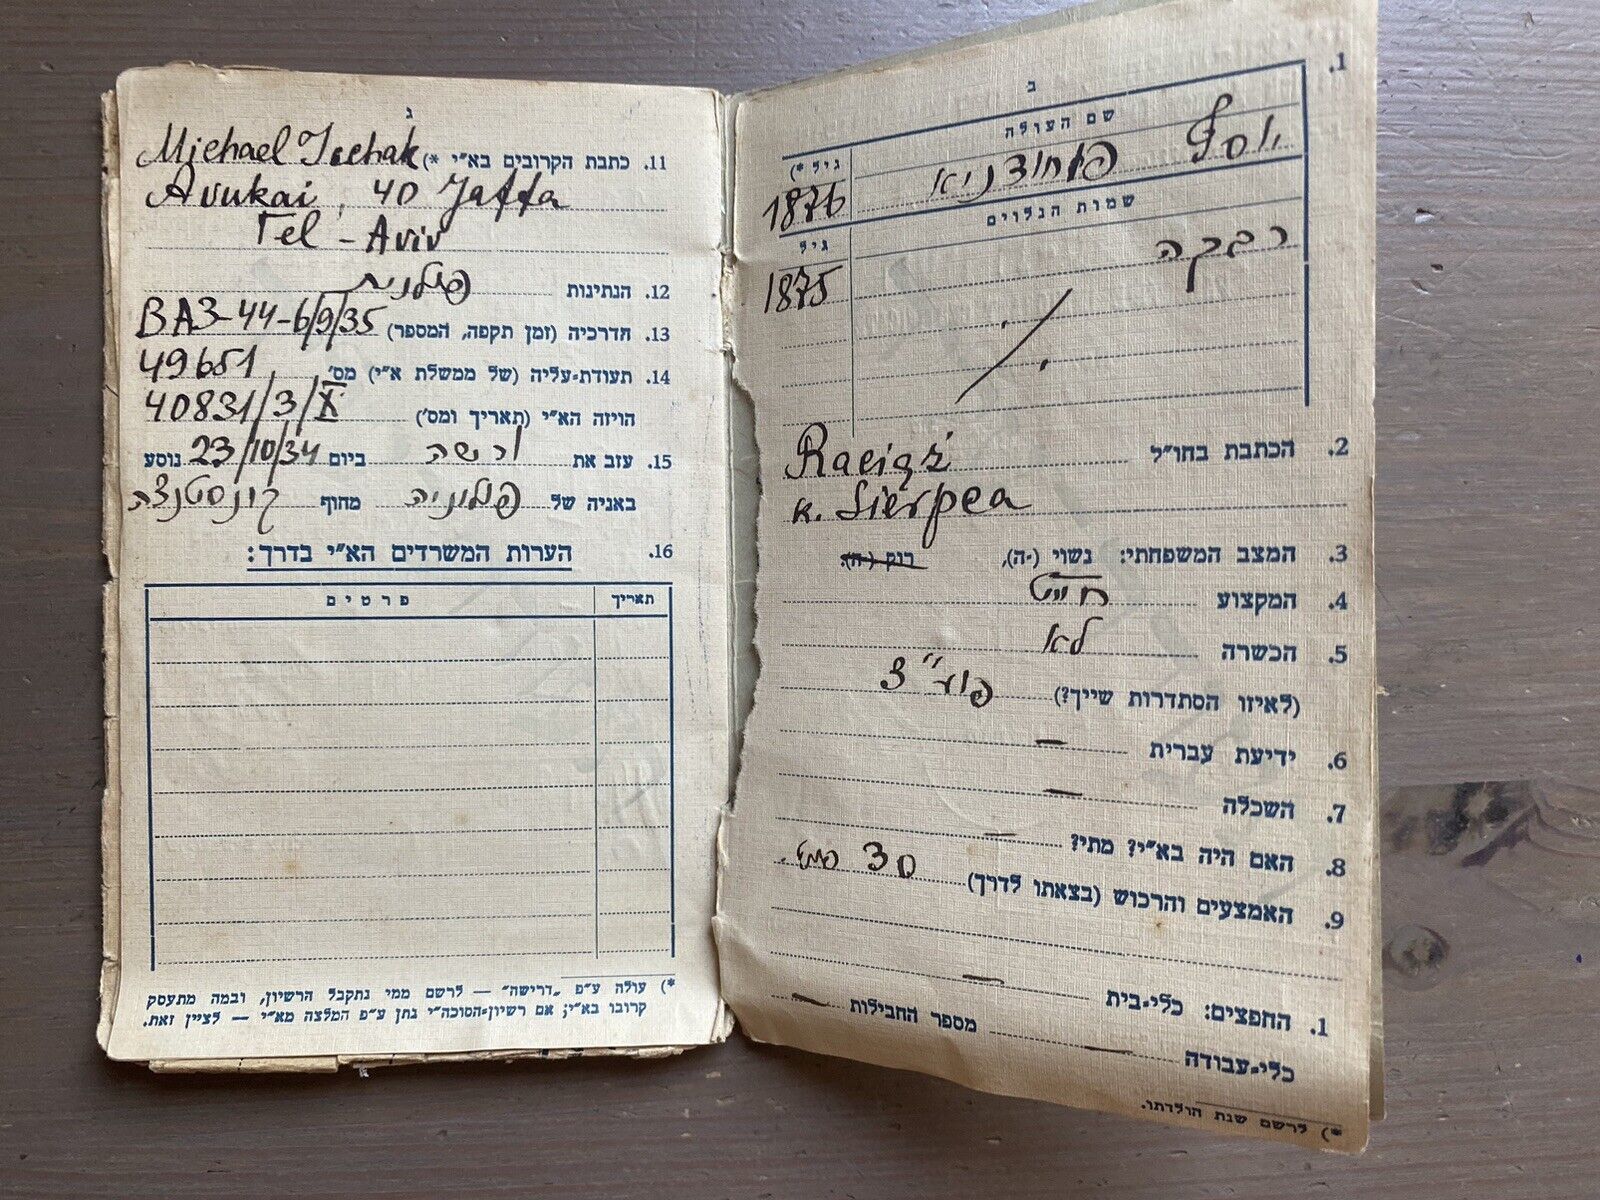 ב
.1
שם העולה
גיל *)
יוסף
1876
שמות הנלוים
גיל
רבקה
1875
.2 הכתבת בחו"ל Raciąż
k. Sierpca
.3 המצב המשפחתי: נשוי (־ה), רוק (־ה).
.4 המקצוע חייט
.5 הכשרה לא
(לאיזו הסתדרות שייך?)
.6 ידיעת עברית —
.7 השכלה —
.8 האם היה בא"י? מתי? —
.9 האמצעים והרכוש (בצאתו לדרך) 30
.1 החפצים: כלי־בית —
מספר החבילות —
כלי־עבודה —
*) לרשם שנת הולדתו.
ג
.11 כתבת הקרובים בא"י *) Michael Icchak
Avukai, 40 Jaffa
Tel - Aviv
.12 הנתינות פולנית
.13 הדרכיה (זמן תקפה, המספר) BA3-44-6/9/35
.14 תעודת־עליה (של ממשלת א"י) מס' 49651
הויזה הא"י (תאריך ומס') 40831/3/X
.15 עזב את ורשה ביום 23/10/34 נוסע
באניה של פולוניה מחוף קונסטנצה
.16 הערות המשרדים הא"י בדרך:
תאריך פרטים
*) עולה ע"פ „דרישה" — לרשם ממי נתקבל הרשיון, ובמה מתעסק
קרובו בא"י; אם רשיון־הסוכה"י נתן ע"פ המלצה מא"י — לציין זאת.